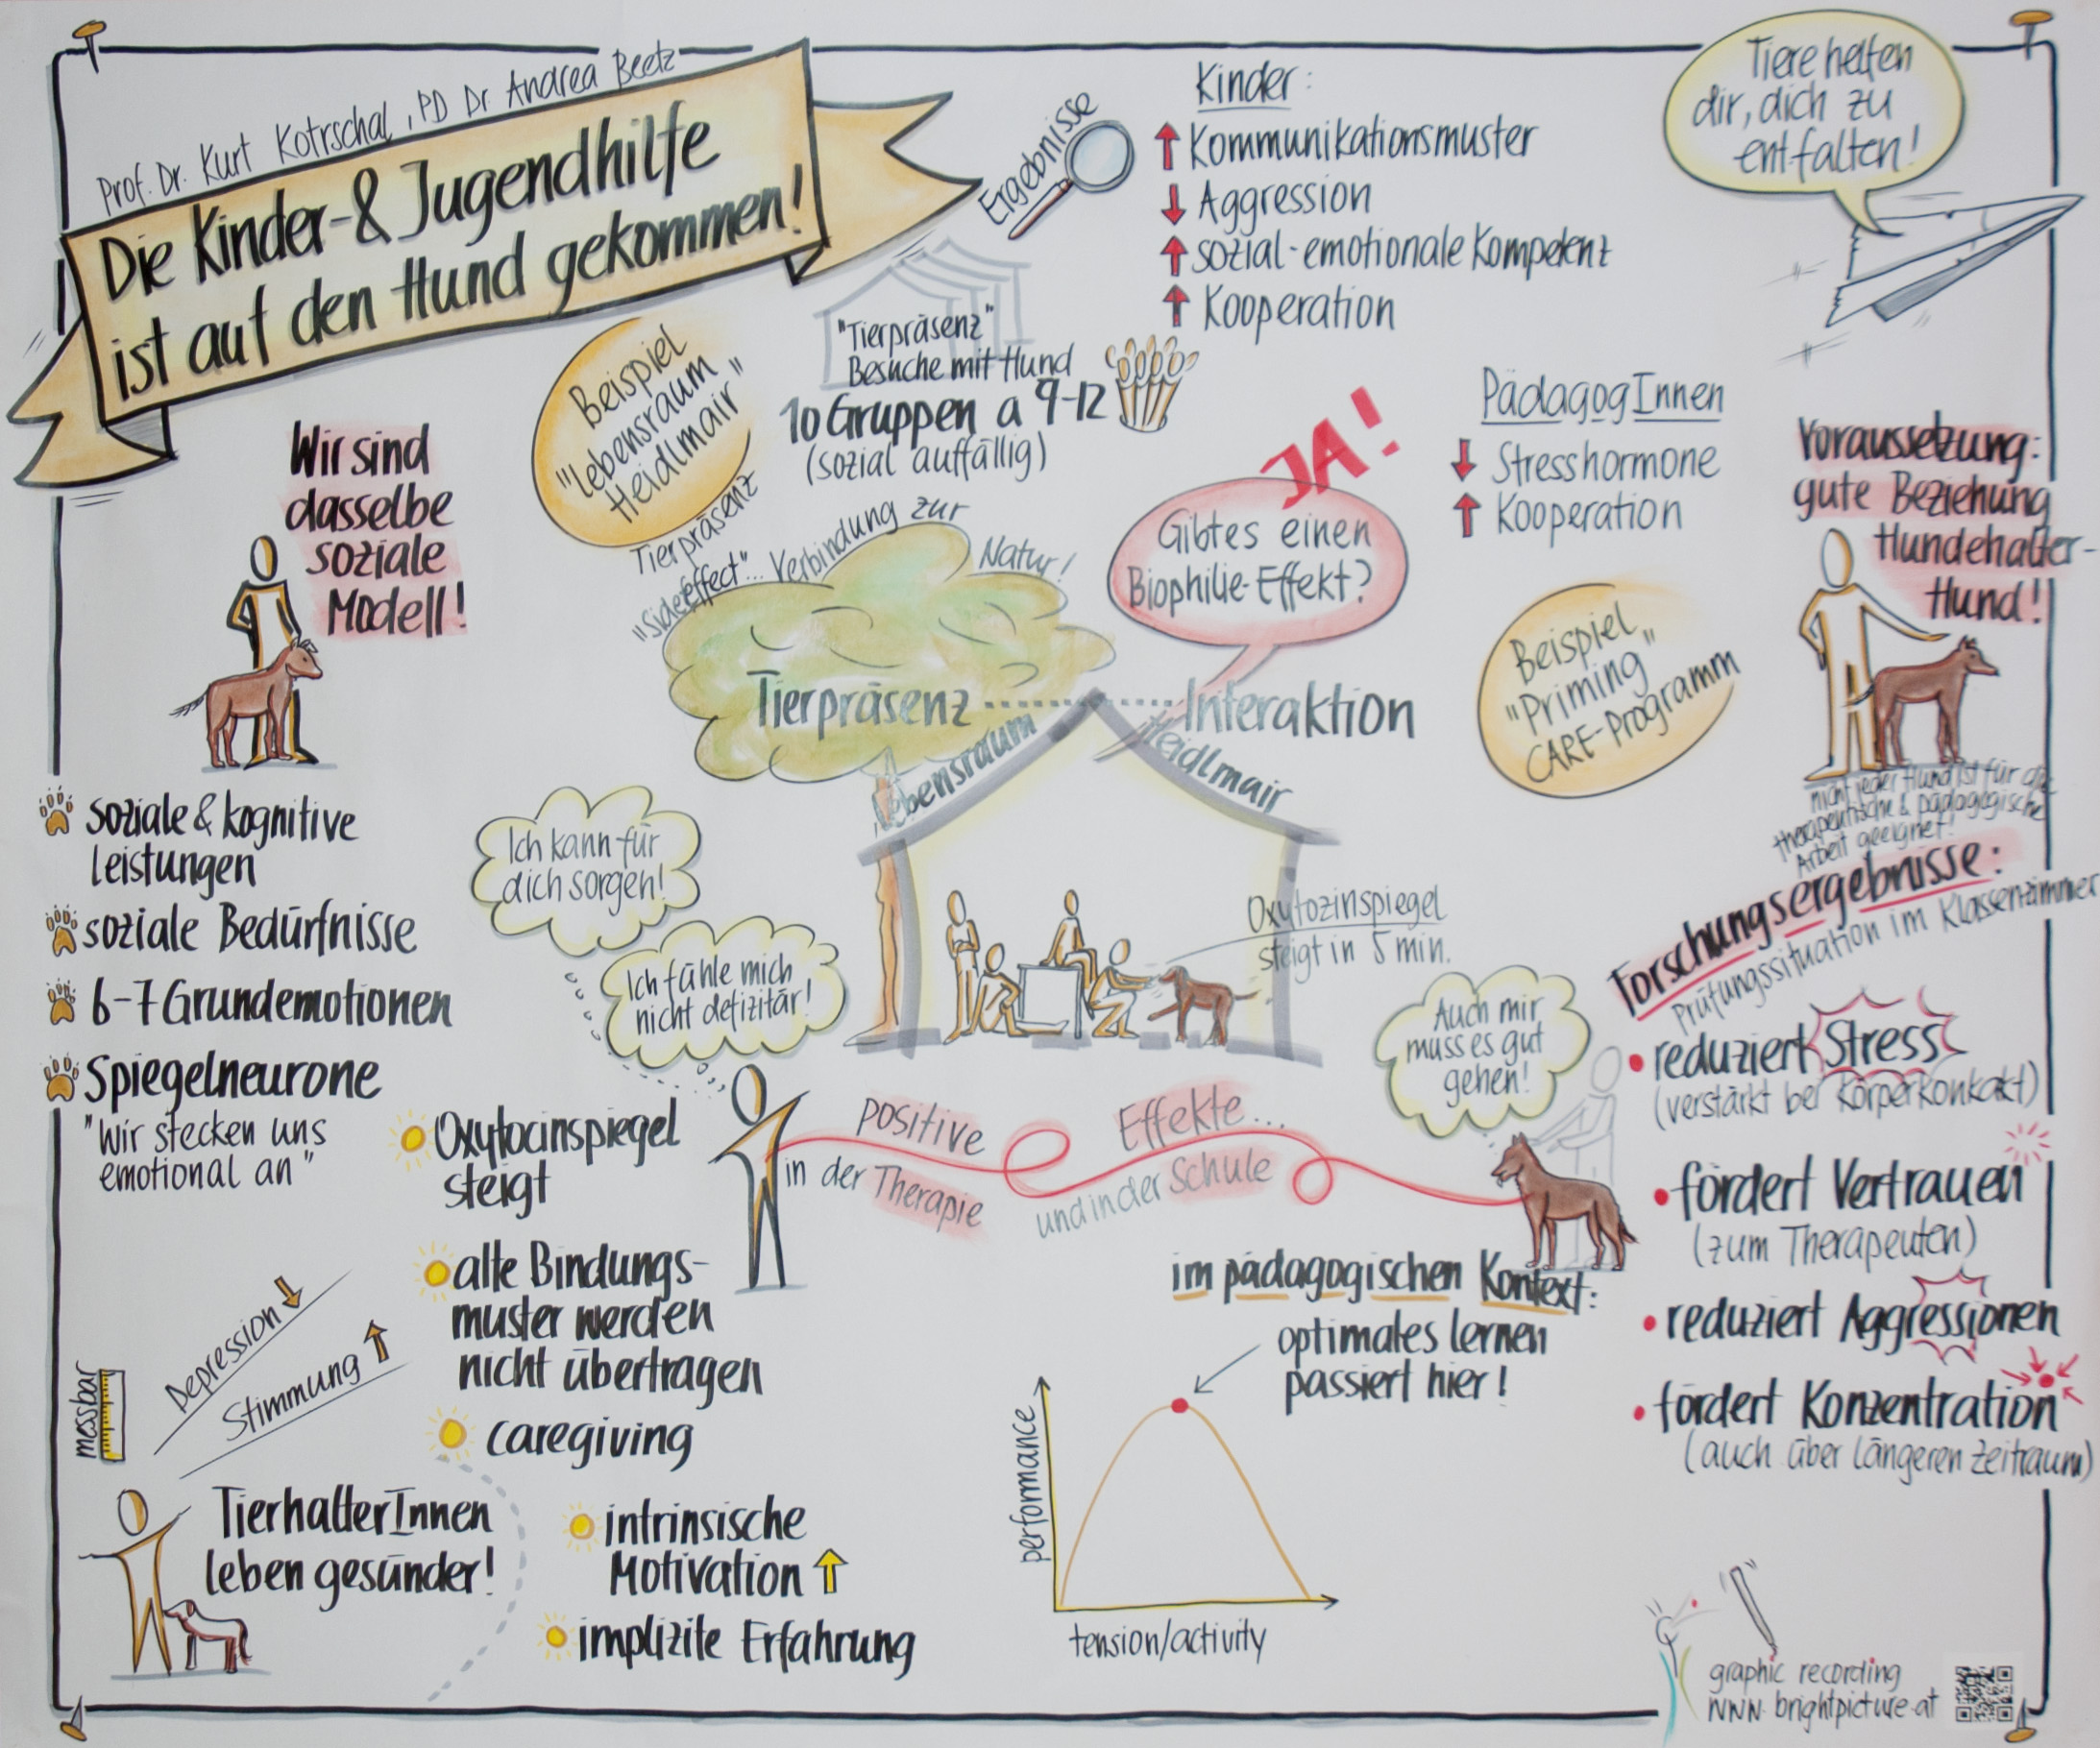 Prof. Dr. Kurt Kotrschal, PD Dr. Andrea Beetz
Die Kinder-& Jugendhilfe
ist auf den Hund gekommen!
Ergebnisse
Kinder:
Kommunikationsmuster
Aggression
sozial-emotionale Kompetenz
Kooperation
Tiere helfen
dir, dich zu
entfalten!
"Tierpräsenz"
Besuche mit Hund
10 Gruppen a 9-12
(sozial auffällig)
Beispiel
"Lebensraum
Heidlmair"
Tierpräsenz
"Sideeffect"... Verbindung zur
Natur!
Wir sind
dasselbe
soziale
Modell!
JA!
Gibt es einen
Biophilie-Effekt?
PädagogInnen
Stresshormone
Kooperation
Voraussetzung:
gute Beziehung
Hundehalter-
Hund!
nicht jeder Hund ist für die
therapeutische & pädagogische
Arbeit geeignet!
Beispiel
"Priming"
CARE-Programm
Tierpräsenz
Interaktion
Lebensraum
Heidlmair
Oxytozinspiegel
steigt in 5 min.
soziale & kognitive
Leistungen
soziale Bedürfnisse
6-7 Grundemotionen
Spiegelneurone
"Wir stecken uns
emotional an"
Ich kann für
dich sorgen!
Ich fühle mich
nicht defizitär!
Auch mir
muss es gut
gehen!
Oxytocinspiegel
steigt
alte Bindungs-
muster werden
nicht übertragen
caregiving
intrinsische
Motivation
implizite Erfahrung
positive
Effekte...
in der Therapie
und in der Schule
Forschungsergebnisse:
Prüfungssituation im Klassenzimmer
reduziert Stress
(verstärkt bei Körperkontakt)
fördert Vertrauen
(zum Therapeuten)
reduziert Aggressionen
fördert Konzentration
(auch über längeren Zeitraum)
im pädagogischen Kontext:
optimales lernen
passiert hier!
performance
tension/activity
messbar
Depression
Stimmung
TierhalterInnen
leben gesünder!
graphic recording
www.brightpicture.at